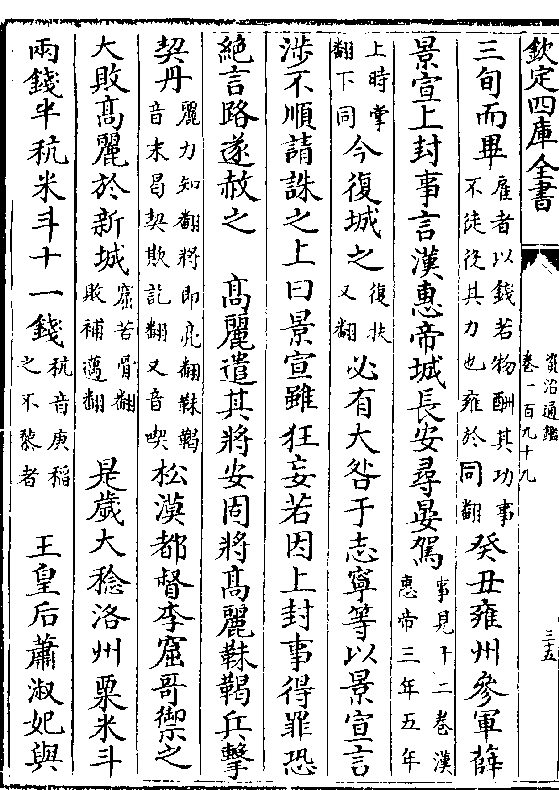 欽定四庫全書
資治通鑑
卷一百九十九
三五
三旬而畢雇者以錢若物酬其功事不徒役其力也雍於同翻癸丑雍州參軍薛
景宣上封事言漢惠帝城長安尋晏駕事見十二卷漢惠帝三年五年
上時掌翻下同今復城之復扶又翻必有大咎于志寧等以景宣言
涉不順請誅之上曰景宣雖狂妄若因上封事得罪恐
絶言路遂赦之　高麗遣其將安固將高麗靺鞨兵擊
契丹麗力知翻將即亮翻靺鞨音末曷契欺訖翻又音喫松漠都督李窟哥禦之
大敗高麗於新城窟苦骨翻敗補邁翻是歲大稔洛州粟米斗
兩錢半秔米斗十一錢秔音庚稻之不黎者　王皇后蕭淑妃與